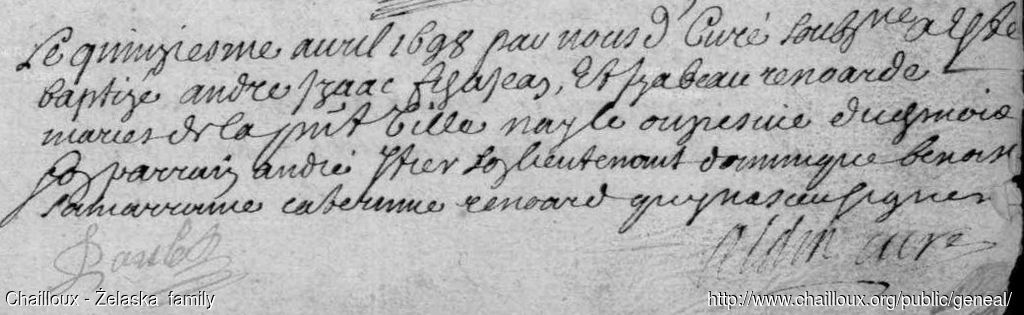 Le quinziesme avril 1698 par nous dt Curé soubsne a esté
baptizé andre Izaac fils a Jean, Et Izabeau renoarde
maries de la pnt Ville nay le ouziesme du dt mois
son parrain andré Itier so lieutenant dominique benoist
sa marraine caterinne renoard qui n'a sceu signer
curé
Chailloux - Želaska family
http://www.chailloux.org/public/geneal/